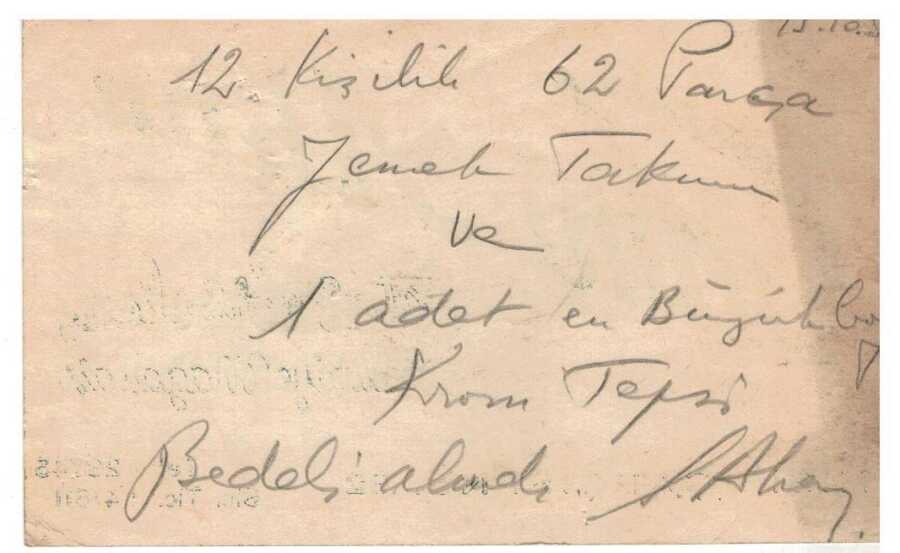 13.10.
12 Kişilik 62 Parça
Yemek Takımı
ve
1 adet en Büyük bo
Krom Tepsi
Bedeli alındı